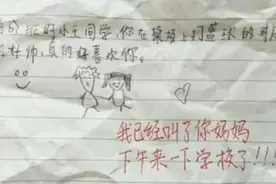 班的小王同学,你在操场上打篮球的
好帅,真的好喜欢你。
我已经叫了你妈妈
下午来一下学校了!!!